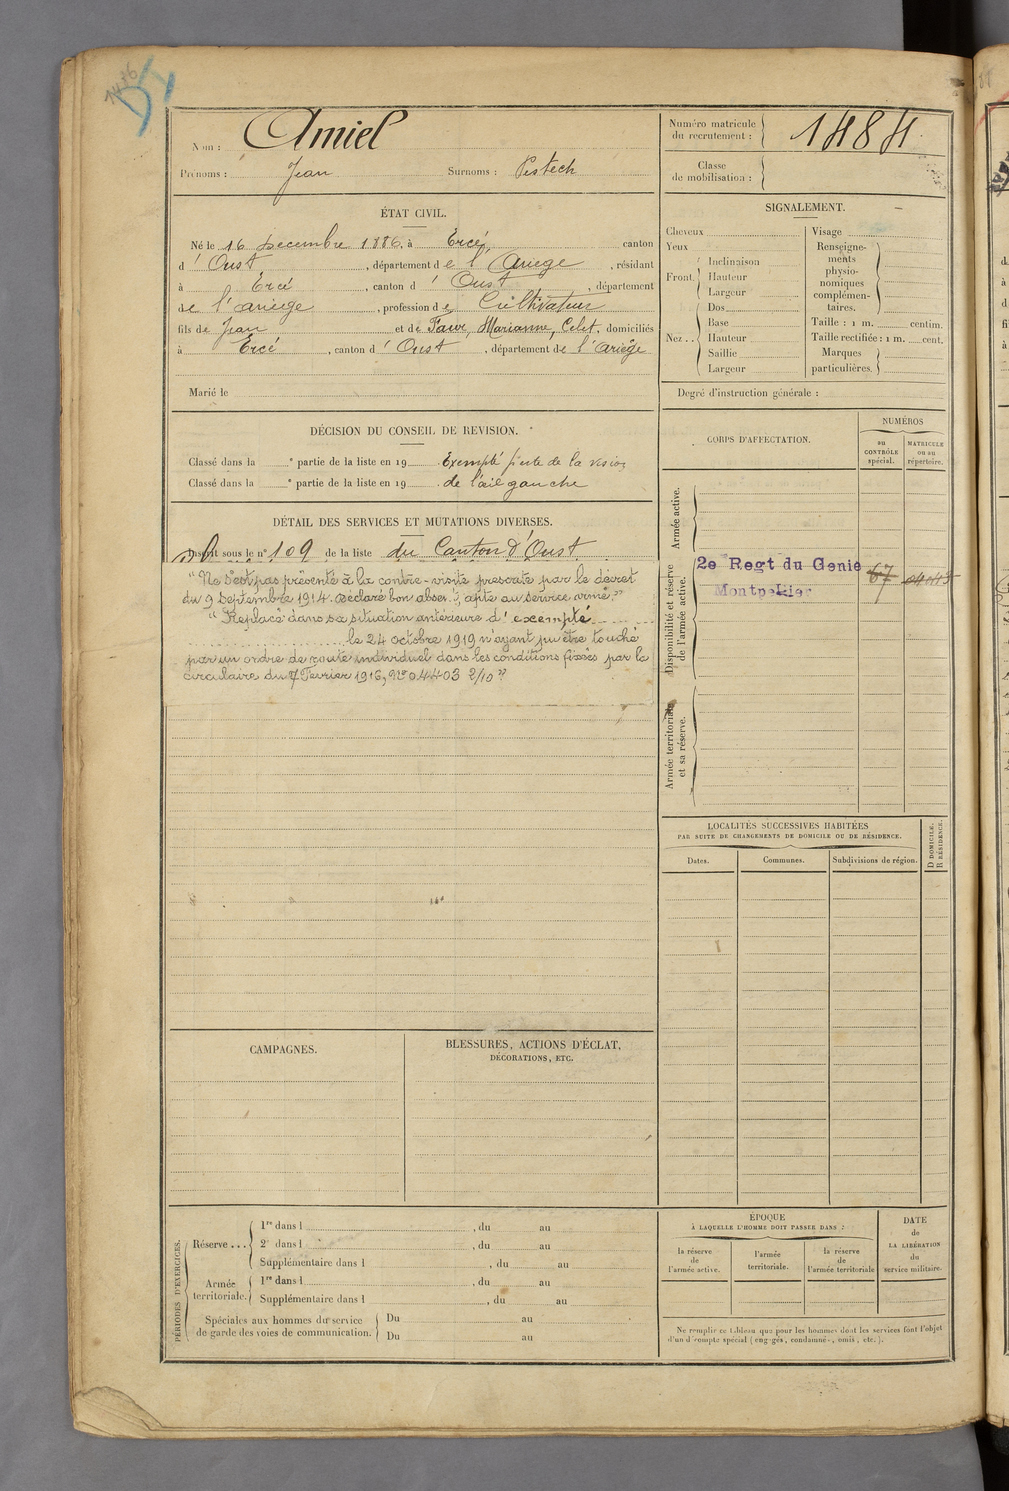 Nom : Amiel
Prénoms : Jean Surnoms : Pistech
Numéro matricule du recrutement : 1484
Classe de mobilisation :
ÉTAT CIVIL.
Né le 16 Decembre 1886, à Ercé, canton
d' Oust, département de l'Ariege, résidant
à Ercé, canton d' Oust, département
de l'ariege, profession de Cultivateur
fils de Jean et de Faur, Marianne, Celet, domiciliés
à Ercé, canton d' Oust, département de l'Ariège
Marié le
SIGNALEMENT.
Cheveux
Yeux
Front
Inclinaison
Hauteur
Largeur
Nez
Dos
Base
Hauteur
Saillie
Largeur
Visage
Renseigne-
ments
physio-
nomiques
complémen-
taires.
Taille : 1 m. centim.
Taille rectifiée : 1 m. cent.
Marques
particulières.
Degré d'instruction générale :
DÉCISION DU CONSEIL DE REVISION.
Classé dans la e partie de la liste en 19 Exempté perte de la vision
Classé dans la e partie de la liste en 19 de l'œil gauche
DÉTAIL DES SERVICES ET MUTATIONS DIVERSES.
Inscrit sous le n° 109 de la liste du Canton d'Oust
"Ne s'est pas présenté à la contre-visite prescrite par le décret
du 9 Septembre 1914. Déclaré bon absent, apte au service armé."
"Replacé dans sa situation antérieure d'exempté
le 24 octobre 1919 n'ayant pu être touché
par un ordre de route individuel dans les conditions fixées par la
circulaire du 7 Fevrier 1916, N° 04403 2/10"
CORPS D'AFFECTATION.
NUMÉROS
au
CONTRÔLE
spécial.
MATRICULE
ou au
répertoire.
Armée active.
Disponibilité et réserve
de l'armée active.
2e Regt du Genie 67
Montpellier
Armée territoriale
et sa réserve.
LOCALITÉS SUCCESSIVES HABITÉES
PAR SUITE DE CHANGEMENTS DE DOMICILE OU DE RÉSIDENCE.
Dates.
Communes.
Subdivisions de région.
D DOMICILE.
R RÉSIDENCE.
CAMPAGNES.
BLESSURES, ACTIONS D'ÉCLAT,
DÉCORATIONS, ETC.
PÉRIODES D'EXERCICES.
Réserve...
1re dans l , du au
2e dans l , du au
Supplémentaire dans l , du au
Armée
territoriale.
1re dans l , du au
Supplémentaire dans l , du au
Spéciales aux hommes du service
de garde des voies de communication.
Du au
Du au
ÉPOQUE
À LAQUELLE L'HOMME DOIT PASSER DANS :
la réserve
de
l'armée active.
l'armée
territoriale.
la réserve
de
l'armée territoriale
DATE
de
LA LIBÉRATION
du
service militaire.
Ne remplir ce tableau que pour les hommes dont les services font l'objet
d'un décompte spécial (engagés, condamnés, omis, etc.).